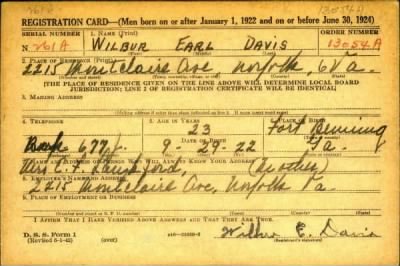 REGISTRATION CARD—(Men born on or after January 1, 1922 and on or before June 30, 1924)
SERIAL NUMBER 1. NAME (Print) ORDER NUMBER
N 261A WILBUR EARL DAVIS 13054A
2. PLACE OF RESIDENCE (Print)
2215 Montclaire Ave Norfolk 6 Va.
[THE PLACE OF RESIDENCE GIVEN ON THE LINE ABOVE WILL DETERMINE LOCAL BOARD
JURISDICTION; LINE 2 OF REGISTRATION CERTIFICATE WILL BE IDENTICAL]
3. MAILING ADDRESS
4. TELEPHONE 5. AGE IN YEARS 6. PLACE OF BIRTH
23 Fort Benning
DATE OF BIRTH
9-29-22 Ga.
7. NAME AND ADDRESS OF PERSON WHO WILL ALWAYS KNOW YOUR ADDRESS
Mrs. (Mother)
8. EMPLOYER'S NAME AND ADDRESS
2215 Montclaire Ave, Norfolk Va.
9. PLACE OF EMPLOYMENT OR BUSINESS
I AFFIRM THAT I HAVE VERIFIED ABOVE ANSWERS AND THAT THEY ARE TRUE.
D. S. S. Form 1
(Revised 6-1-42) Wilbur E. Davis
(Registrant's signature)